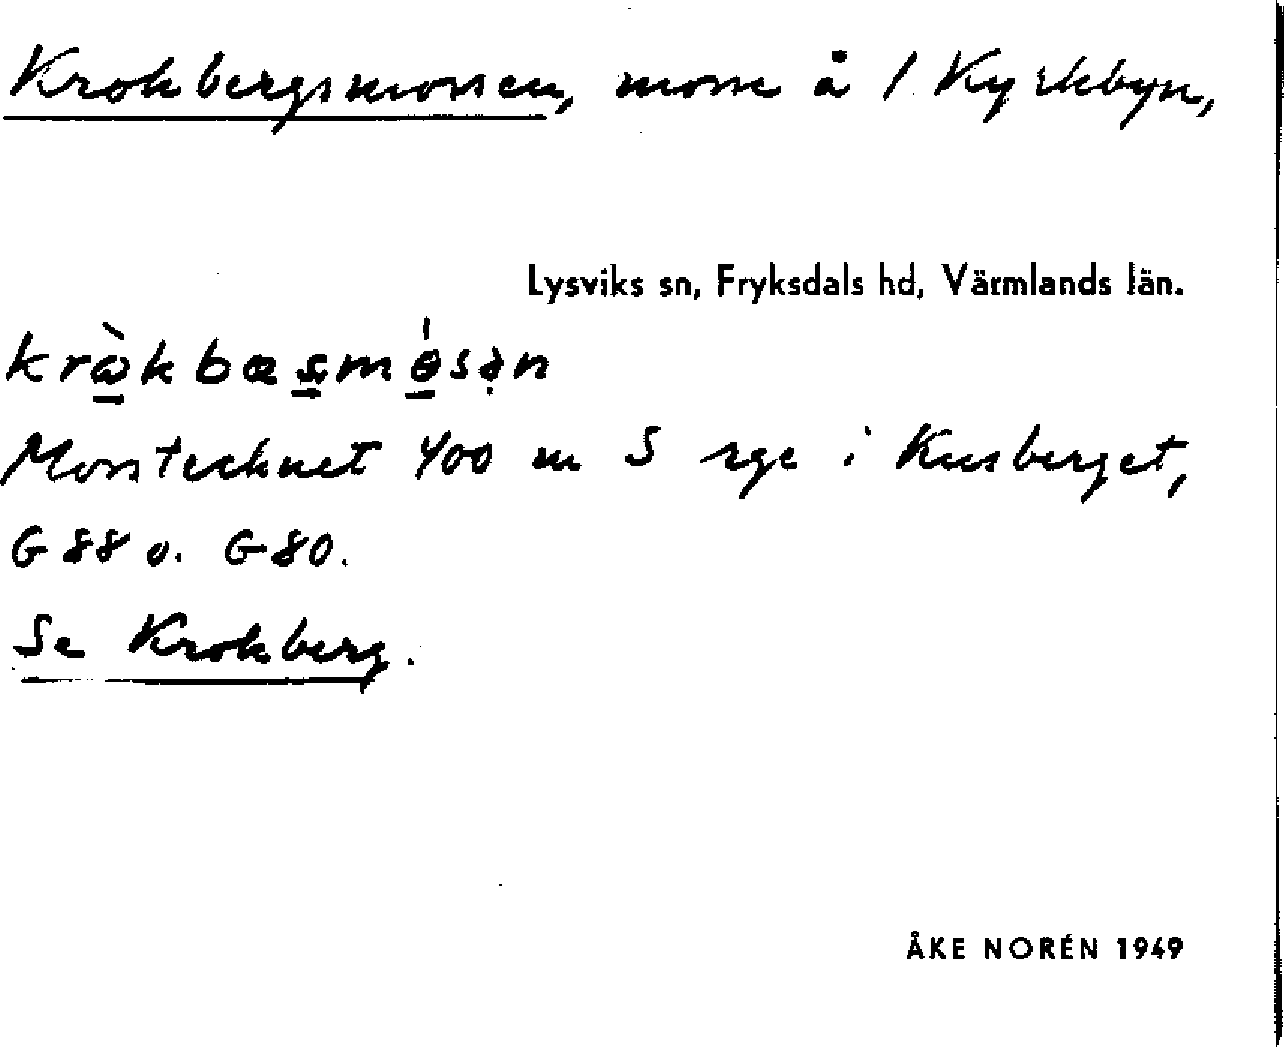 Krokbergsmossen, mosse å 1 Kyrkbyn,
Lysviks sn, Fryksdals hd, Värmlands län.
Mosstecknet 400 m S rge i Kusberget,
G 88 o. G 80.
Se Krokberg.
ÅKE NORÉN 1949